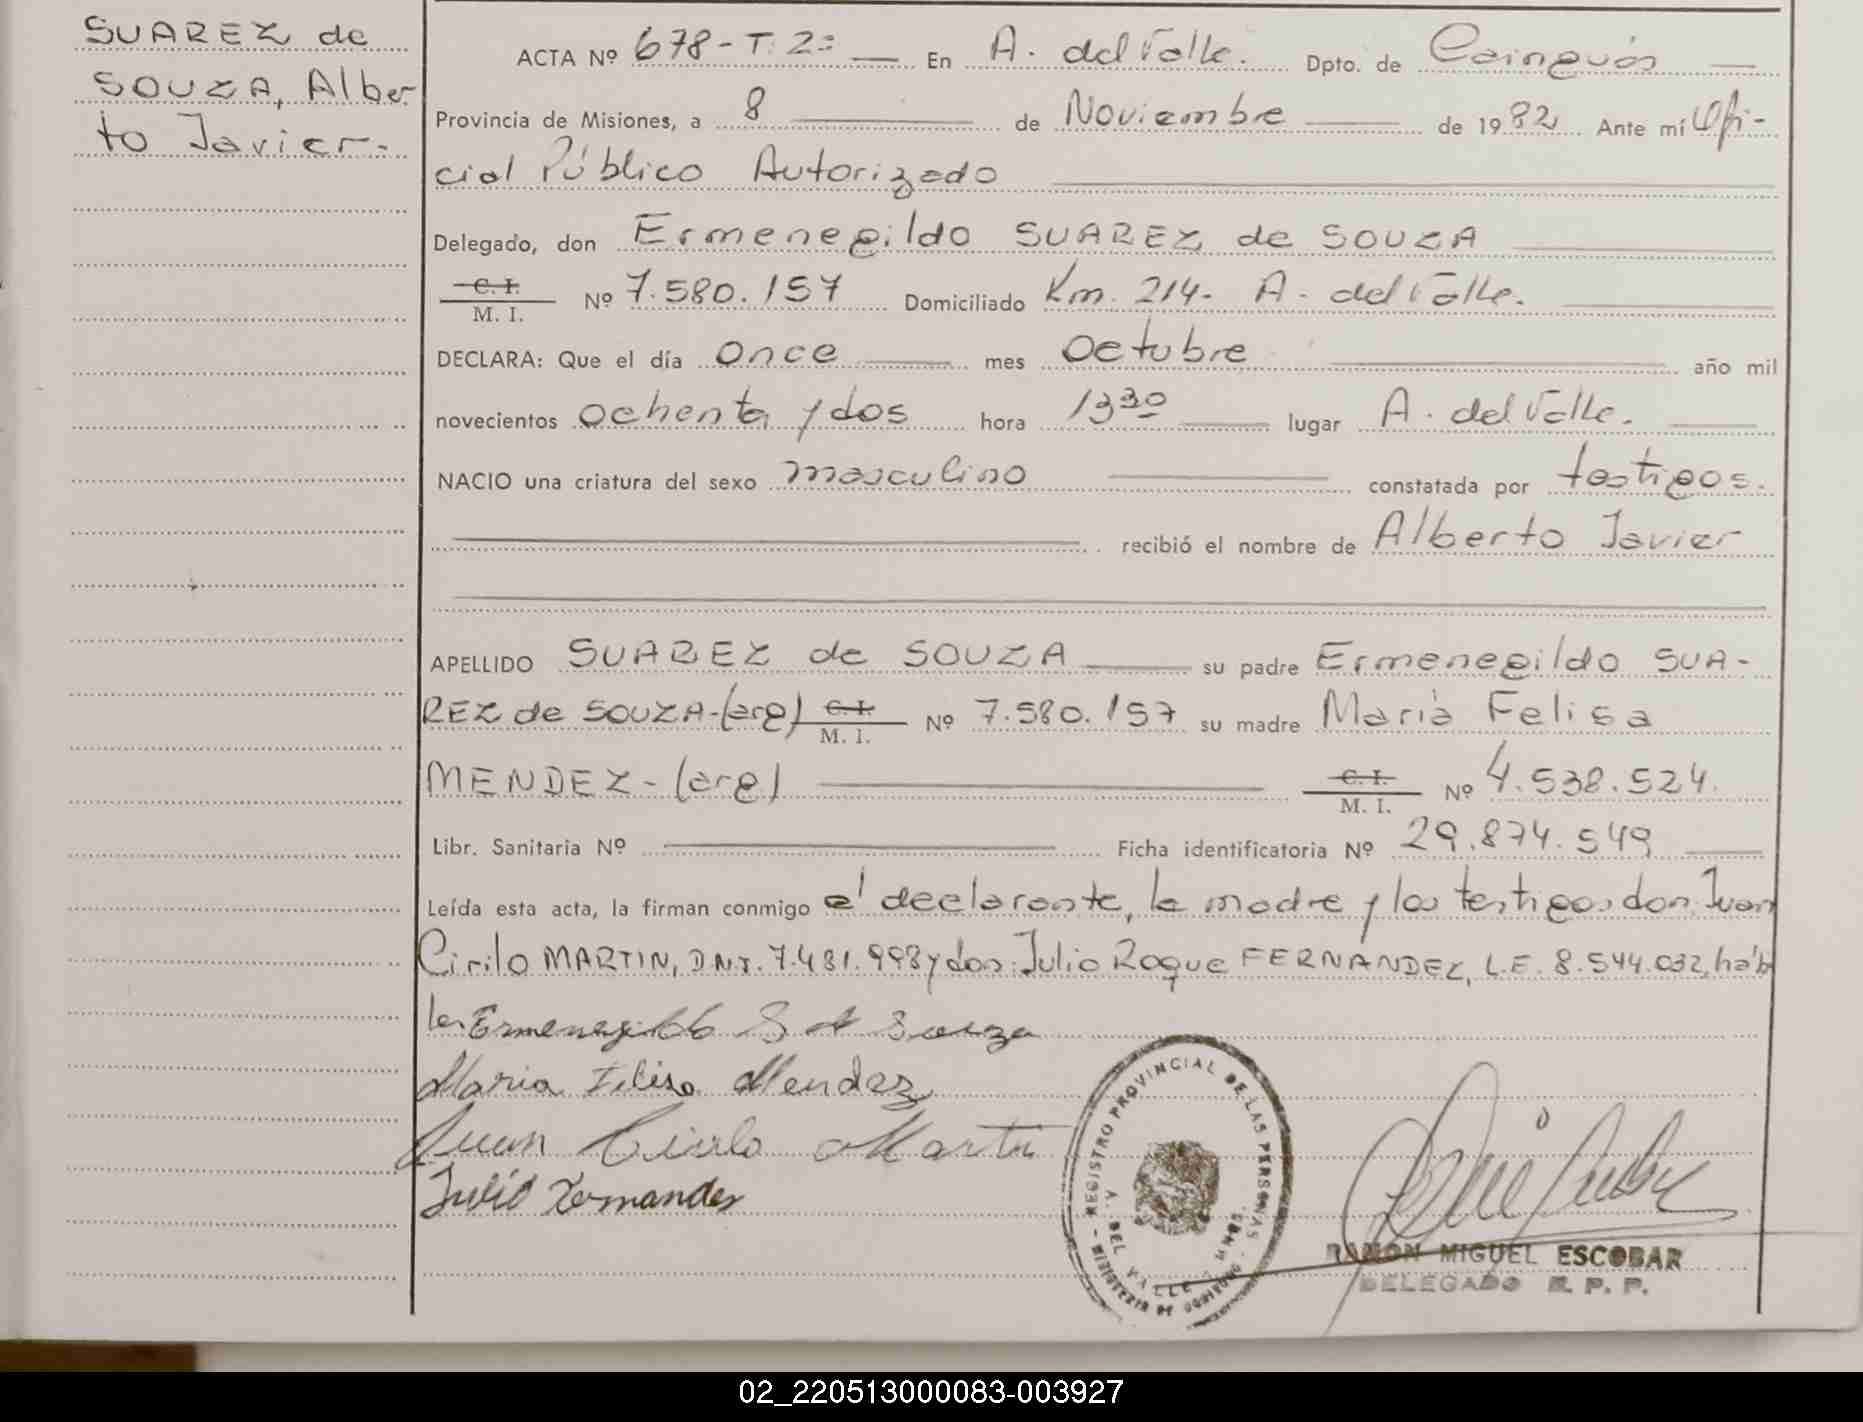 SUAREZ de
SOUZA, Alber
to Javier-
ACTA Nº 678-T: 2º — En A. del Valle. Dpto. de Cainguás —
Provincia de Misiones, a 8 — de Noviembre — de 1982 Ante mí Ofi-
cial Público Autorizado
Delegado, don Ermenegildo SUAREZ de SOUZA
C. I.
M. I. Nº 7.580.157 Domiciliado Km. 214- A. del Valle.
DECLARA: Que el día once — mes Octubre — año mil
novecientos ochenta y dos hora 13 30 — lugar A. del Valle. —
NACIO una criatura del sexo masculino — constatada por testigos.
— recibió el nombre de Alberto Javier
APELLIDO SUAREZ de SOUZA — su padre Ermenegildo SUA-
REZ de SOUZA-(arg) C. I. M. I. Nº 7.580.157 su madre Maria Felisa
MENDEZ-(arg) — C. I. M. I. Nº 4.538.524.
Libr. Sanitaria Nº — Ficha identificatoria Nº 29.874.549 —
Leída esta acta, la firman conmigo el declarante, la madre y los testigos don Juan
Cirilo MARTIN, DNI. 7.481.998 y don Julio Roque FERNANDEZ, L.E. 8.544.032, hábi
les. Ermenegildo S d Souza
Maria Felisa Mendez
Juan Cirilo Martin
Julio Fernandez
REGISTRO PROVINCIAL DE LAS PERSONAS
A. DEL VALLE - MNES.
MINISTERIO DE GOBIERNO
RAMON MIGUEL ESCOBAR
DELEGADO R. P. P.
02_220513000083-003927